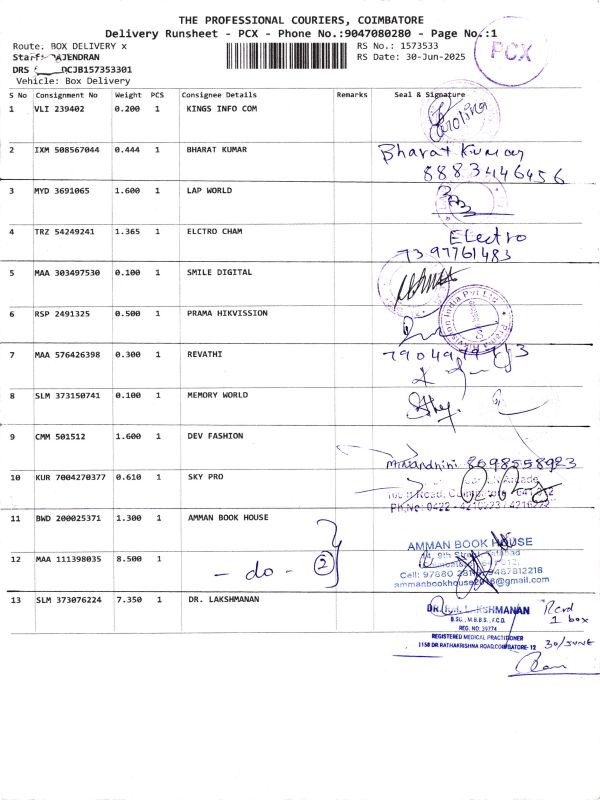 THE PROFESSIONAL COURIERS, COIMBATORE
Delivery Runsheet - PCX - Phone No.:9047080280 - Page No.:1
Route: BOX DELIVERY x
RS No.: 1573533
PCX
Staff: RAJENDRAN
RS Date: 30-Jun-2025
DRS CJB157353301
Vehicle: Box Delivery
S No Consignment No Weight PCS Consignee Details Remarks Seal & Signature
1 VLI 239402 0.200 1 KINGS INFO COM
2 IXM 508567044 0.444 1 BHARAT KUMAR Bharat Kumar
8883446456
3 MYD 3691065 1.600 1 LAP WORLD
4 TRZ 54249241 1.365 1 ELCTRO CHAM Electro
7397761483
5 MAA 303497530 0.100 1 SMILE DIGITAL
6 RSP 2491325 0.500 1 PRAMA HIKVISSION Prama Hikvision India Pvt Ltd
7 MAA 576426398 0.300 1 REVATHI
8 SLM 373150741 0.100 1 MEMORY WORLD
9 CMM 501512 1.600 1 DEV FASHION
8098558923
10 KUR 7004270377 0.610 1 SKY PRO
Road, Coimbatore
PH.No: 0422 - 4216223 / 4216222
11 BWD 200025371 1.300 1 AMMAN BOOK HOUSE
AMMAN BOOK HOUSE
9th Street
12 MAA 111398035 8.500 1 - do - 2
Cell: 97880 9487812218
ammanbookhouse2016@gmail.com
13 SLM 373076224 7.350 1 DR. LAKSHMANAN
DR. LAKSHMANAN Rcvd
1 box
B.Sc., M.B.B.S., F.C.D.
REG. NO: 39774
REGISTERED MEDICAL PRACTITIONER 30/JUNE
1158 DR.RATHAKRISHNA ROAD, COIMBATORE-12